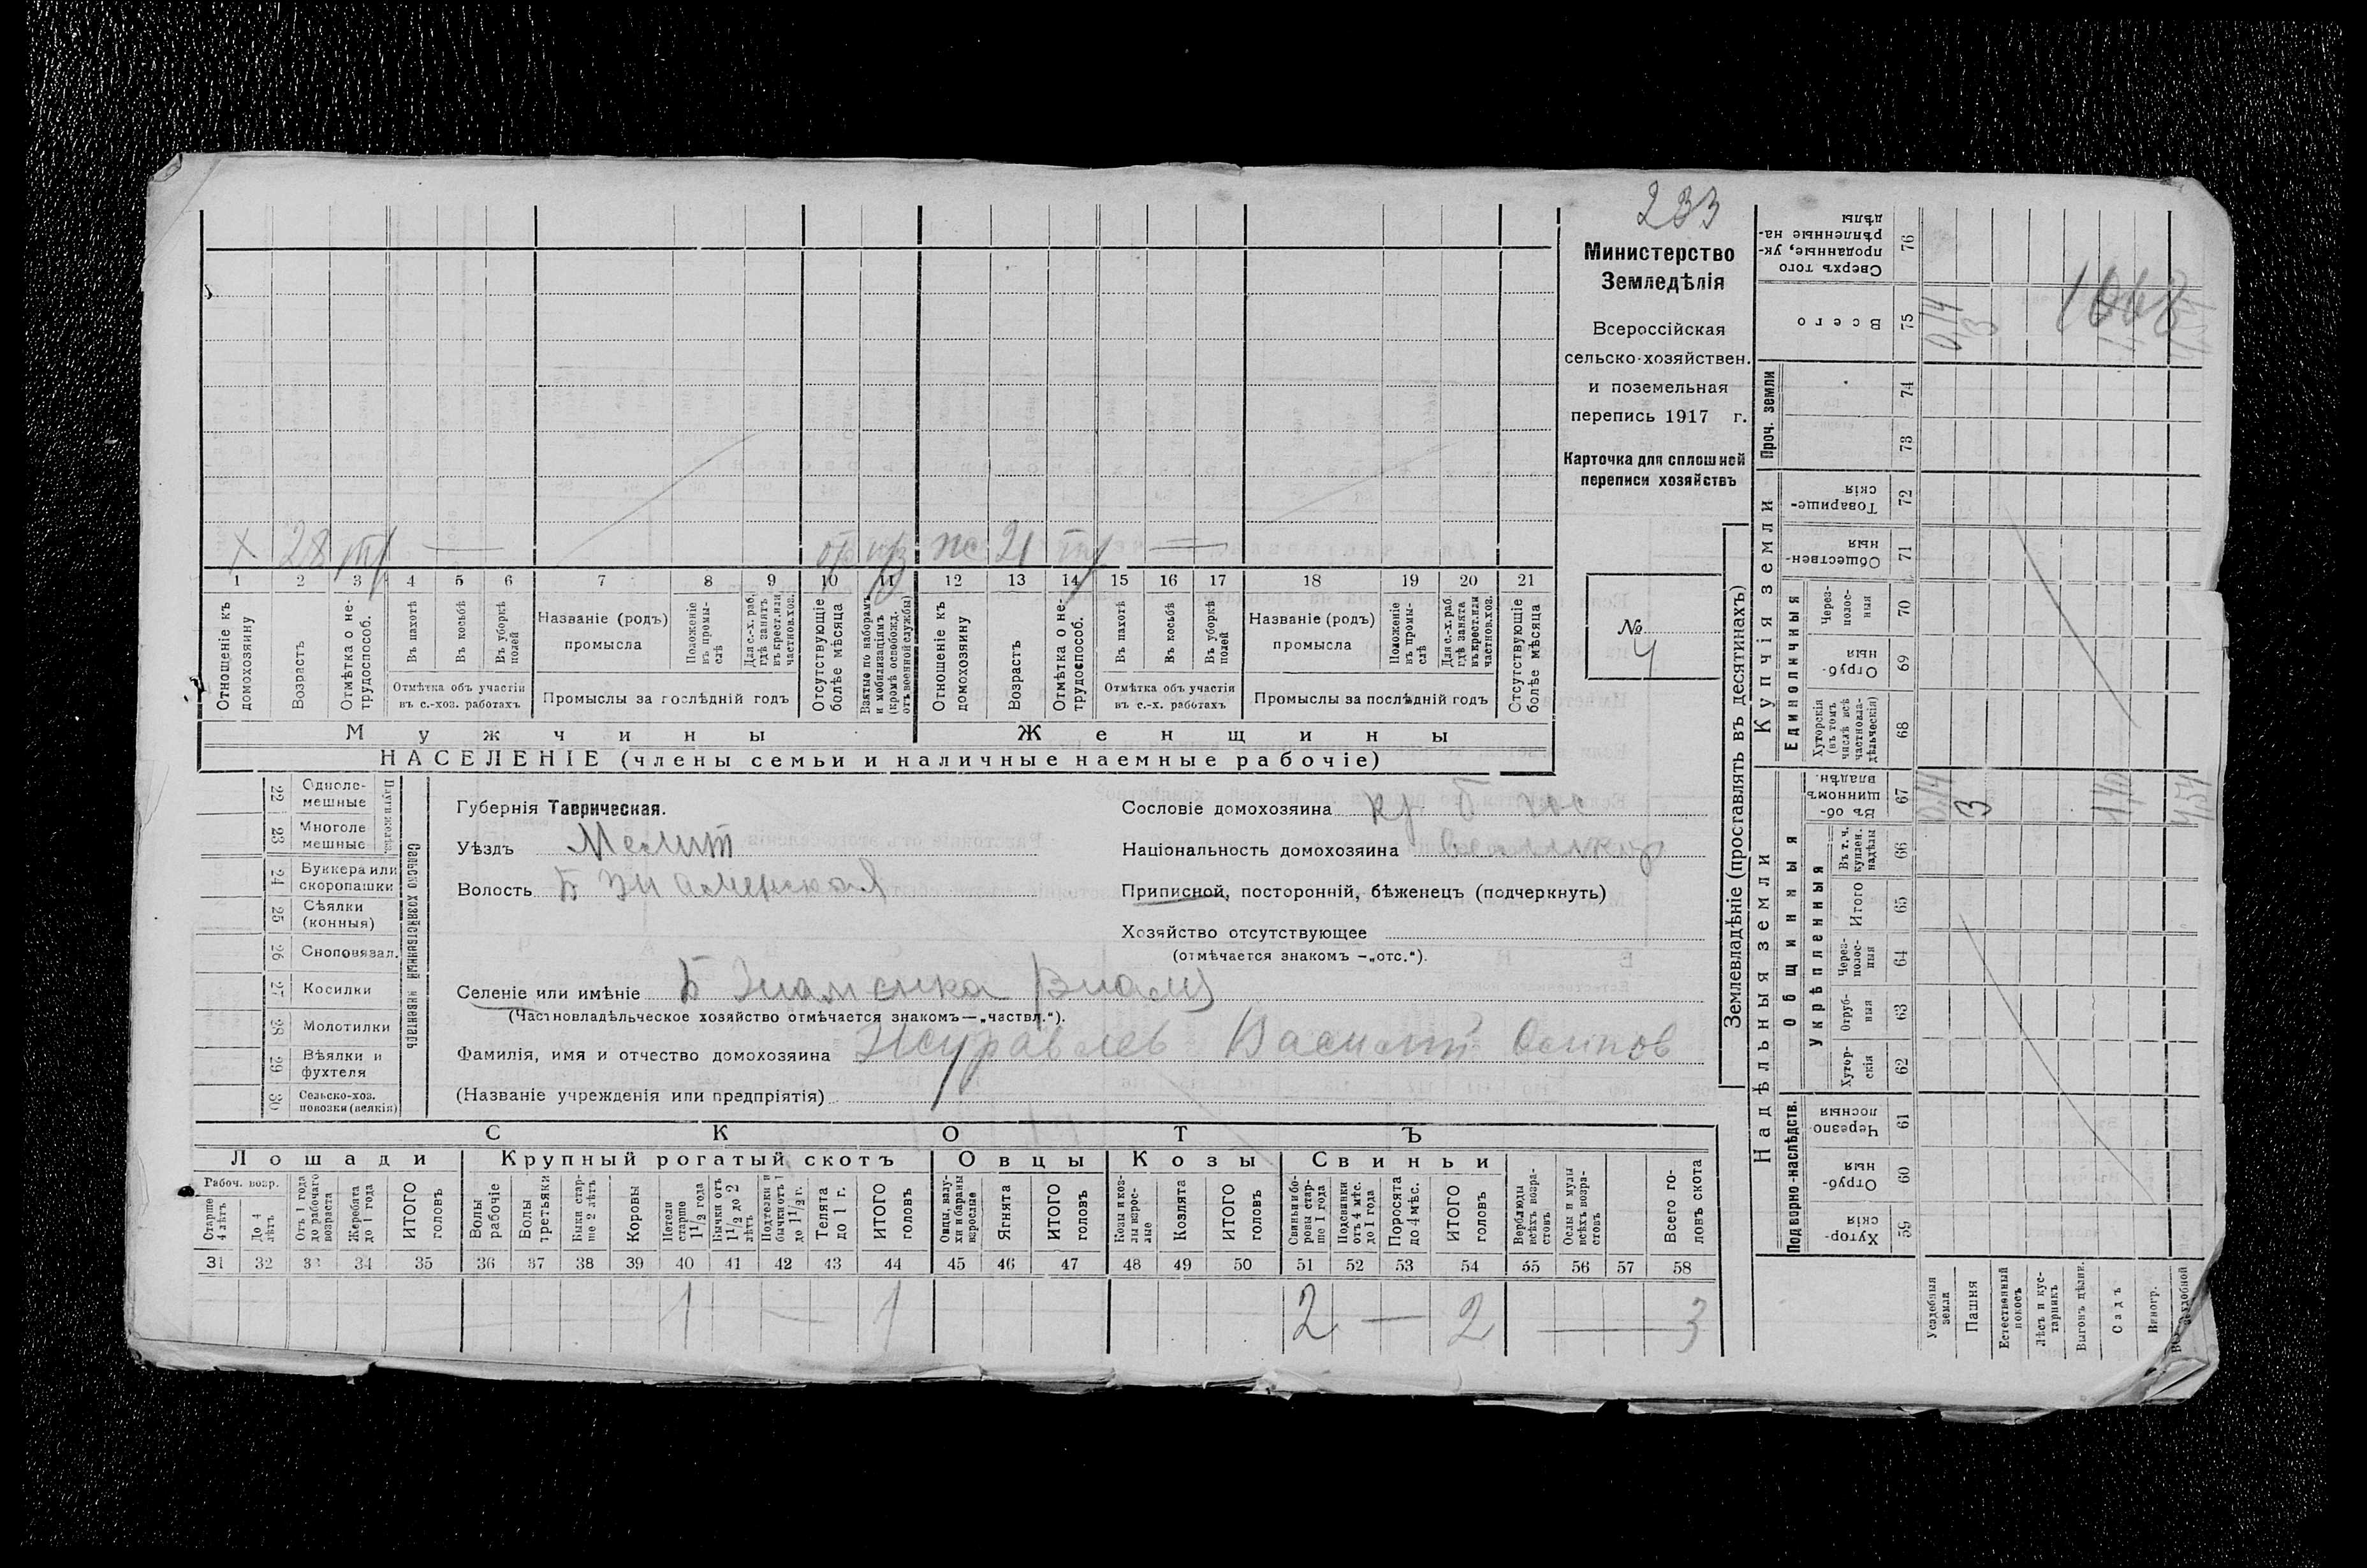 233
Министерство
Земледѣлія
Всероссійская
сельско-хозяйствен.
и поземельная
перепись 1917 г.
Карточка для сплошной
переписи хозяйствъ
№
4
Х 28 — ж 21 —
1 2 3 4 5 6 7 8 9 10 11 12 13 14 15 16 17 18 19 20 21
Отношеніе къ домохозяину
Возрастъ
Отмѣтка о не-трудоспособ.
Въ пахотѣ
Въ косьбѣ
Въ уборкѣ полей
Отмѣтка объ участіи
въ с.-хоз. работахъ
Названіе (родъ)
промысла
Положеніе въ промы-слѣ
Для с.-х. раб. гдѣ занятъ въ крест. или частнов. хоз.
Промыслы за послѣдній годъ
Отсутствующіе болѣе мѣсяца
Взятые по наборамъ и мобилизаціямъ (кромѣ освобожд. отъ военной службы)
Отношеніе къ домохозяину
Возрастъ
Отмѣтка о не-трудоспособ.
Въ пахотѣ
Въ косьбѣ
Въ уборкѣ полей
Отмѣтка объ участіи
въ с.-х. работахъ
Названіе (родъ)
промысла
Положеніе въ промы-слѣ
Для с.-х. раб. гдѣ занята въ крест. или частнов. хоз.
Промыслы за послѣдній годъ
Отсутствующіе болѣе мѣсяца
Мужчины Женщины
НАСЕЛЕНІЕ (члены семьи и наличные наемные рабочіе)
22 Одноле-мешные
23 Многоле мешные
Плуги желѣз.
24 Буккера или скоропашки
25 Сѣялки (конныя)
26 Сноповязал.
27 Косилки
28 Молотилки
29 Вѣялки и фухтеля
30 Сельско-хоз. повозки (всякія)
Сельско хозяйственный инвентарь
Губернія Таврическая.
Уѣздъ Мелит
Волость Б Знаменская
Селеніе или имѣніе Б Знаменка
(Частновладѣльческое хозяйство отмѣчается знакомъ—„частвл.“).
Фамилія, имя и отчество домохозяина Журавлев Василий Осипов
(Названіе учрежденія или предпріятія)
Сословіе домохозяина кр
Національность домохозяина великор
Приписной, посторонній, бѣженецъ (подчеркнуть)
Хозяйство отсутствующее
(отмѣчается знакомъ —„отс.“).
СКОТЪ
Лошади Крупный рогатый скотъ Овцы Козы Свиньи
Рабоч. возр.
Старше 4 лѣтъ
До 4 лѣтъ
Отъ 1 года до рабочаго возраста
Жеребята до 1 года
ИТОГО головъ
Волы рабочіе
Волы третьяки
Быки стар-ше 2 лѣтъ
Коровы
Нетели старше 1 1/2 года
Бычки отъ 1 1/2 до 2 лѣтъ
Подтелки и бычки отъ 1 до 1 1/2 г.
Телята до 1 г.
ИТОГО головъ
Овцы, валу-хи и бараны взрослые
Ягнята
ИТОГО головъ
Козы и коз-лы взрос-лые
Козлята
ИТОГО головъ
Свиньи и бо-ровы стар-ше 1 года
Подсвинки отъ 4 мѣс. до 1 года
Поросята до 4 мѣс.
ИТОГО головъ
Верблюды всѣхъ возра-стовъ
Ослы и мулы всѣхъ возра-стовъ
Всего го-ловъ скота
31 32 33 34 35 36 37 38 39 40 41 42 43 44 45 46 47 48 49 50 51 52 53 54 55 56 57 58
1 — 1 2 — 2 — 3
Землевладѣніе (проставлять въ десятинахъ)
Надѣльныя земли
Купчія земли
Проч. земли
Подворно-наслѣдств.
Общинныя
Укрѣпленныя
Единоличныя
Сверхъ того проданные, ук-рѣпленные на-дѣлы 76
Всего 75
74
73
Товарище-скія 72
Обществен-ныя 71
Через-полос-ныя 70
Отруб-ныя 69
Хуторскія (въ томъ числѣ всѣ частновла-дѣльческія) 68
Въ об-щинномъ владѣн. 67
Въ т. ч. куплен. надѣлы 66
Итого 65
Через-полос-ныя 64
Отруб-ныя 63
Хутор-скія 62
Черезпо лосныя 61
Отруб-ныя 60
Хутор-скія 59
Усадебная земля
Пашня
Естественный покосъ
Лѣсъ и кус-тарникъ
Выгонъ цѣлин.
Садъ
Виногр.
0,14
3
1068
0,14
3
1,40
4,54